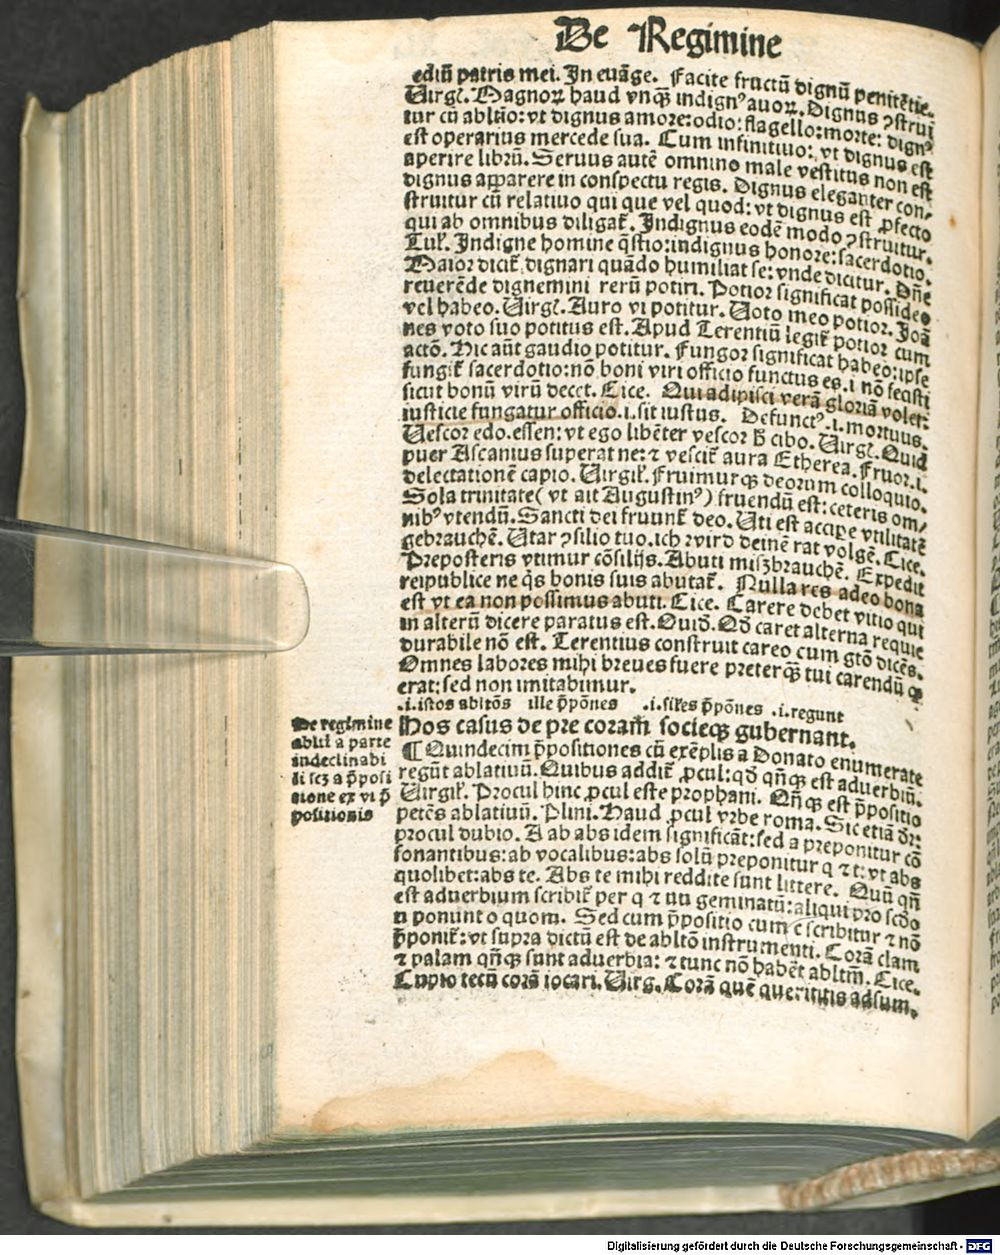 De Regimine
ediũ patris mei. In euãge. Facite fructũ dignũ penitẽtie.
Virgꝉ. Magnoꝝ haud vnqꝫ indignꝰ auoꝝ. Dignus ꝯstrui
tur cũ abltĩo: vt dignus amore: odio: flagello: morte: dignꝰ
est operarius mercede sua. Cum infinitiuo: vt dignus est
aperire librũ. Seruus autẽ omnino male vestitus non est
dignus apparere in conspectu regis. Dignus eleganter con/
struitur cũ relatiuo qui que vel quod: vt dignus est ꝓfecto
qui ab omnibus diligat᷒. Indignus eodẽ modo ꝯstruitur.
Tul᷒. Indigne homine q̃stio: indignus honore: sacerdotio.
Maior dicit᷒ dignari quãdo humiliat se: vnde dicitur. Dñe
reuerẽde dignemini rerũ potiri. Potior significat possideo
vel habeo. Virgꝉ. Auro vi potitur. Uoto meo potior. Joã
nes voto suo potitus est. Apud Terentiũ legit᷒ potior cum
actõ. Hic aũt gaudio potitur. Fungor significat habeo: ipse
fungit᷒ sacerdotio: nõ boni viri officio functus es .i. nõ fecisti
sicut bonũ virũ decet. Cice. Qui adipisci verã gloriã volet:
iusticie fungatur officio .i. sit iustus. Defunctꝰ .i. mortuus.
Vescor edo. essen: vt ego libẽter vescor h̃ cibo. Virgꝉ. Quid
puer Ascanius superat ne: ⁊ vescit᷒ aura Etherea. Fruor .i.
delectationẽ capio. Virgil᷒. Fruimurqꝫ deorum colloquio.
Sola trinitate (vt ait Augustinꝰ) fruendũ est: ceteris om/
nibꝰ vtendũ. Sancti dei fruunt᷒ deo. Uti est accipe vtilitatẽ
gebrauchẽ. Utar ꝯsilio tuo. ich wird deinẽ rat volgẽ. Cice.
Preposteris vtimur cõsilijs. Abuti miszbrauchẽ. Expedit
reipublice ne q̃s bonis suis abutat᷒. Nulla res adeo bona
est vt ea non possimus abuti. Cice. Carere debet vitio qui
in alterũ dicere paratus est. Ouid. Qð caret alterna requie
durabile nõ est. Terentius construit careo cum gtõ dicẽs.
Omnes labores mihi breues fuere preterqꝫ tui carendũ qꝫ
erat: sed non imitabimur.
.i. istos abltõs ille p̃põnes .i. sil᷒es p̃põnes .i. regunt
Hos casus de pre coram̃ socieqꝫ gubernant.
De regimine
abltĩ a parte
indeclinabi
li scꝫ a p̃posi
tione ex vi p̃
positionis
¶ Quindecim p̃positiones cũ exẽplis a Donato enumerate
regũt ablatiuũ. Quibus addit᷒ ꝓcul: qð qñqꝫ est aduerbiũ.
Virgil᷒. Procul hinc ꝓcul este prophani. Qñqꝫ est p̃positio
petẽs ablatiuũ. Plini. Haud ꝓcul vrbe roma. Sic etiã dr̃:
procul dubio. A ab abs idem significãt: sed a preponitur cõ
sonantibus: ab vocalibus: abs solũ preponitur q ⁊ t: vt abs
quolibet: abs te. Abs te mihi reddite sunt littere. Quũ qñ
est aduerbium scribit᷒ per q ⁊ uu geminatũ: aliqui pro scðo
u ponunt o quom. Sed cum p̃positio cum c scribitur ⁊ nõ
p̃ponit᷒: vt supra dictũ est de abltõ instrumenti. Corã clam
⁊ palam qñqꝫ sunt aduerbia: ⁊ tunc nõ habẽt abltm̃. Cice.
Cupio tecũ corã iocari. Virg. Corã quẽ queritis adsum.
Digitalisierung gefördert durch die Deutsche Forschungsgemeinschaft - DFG